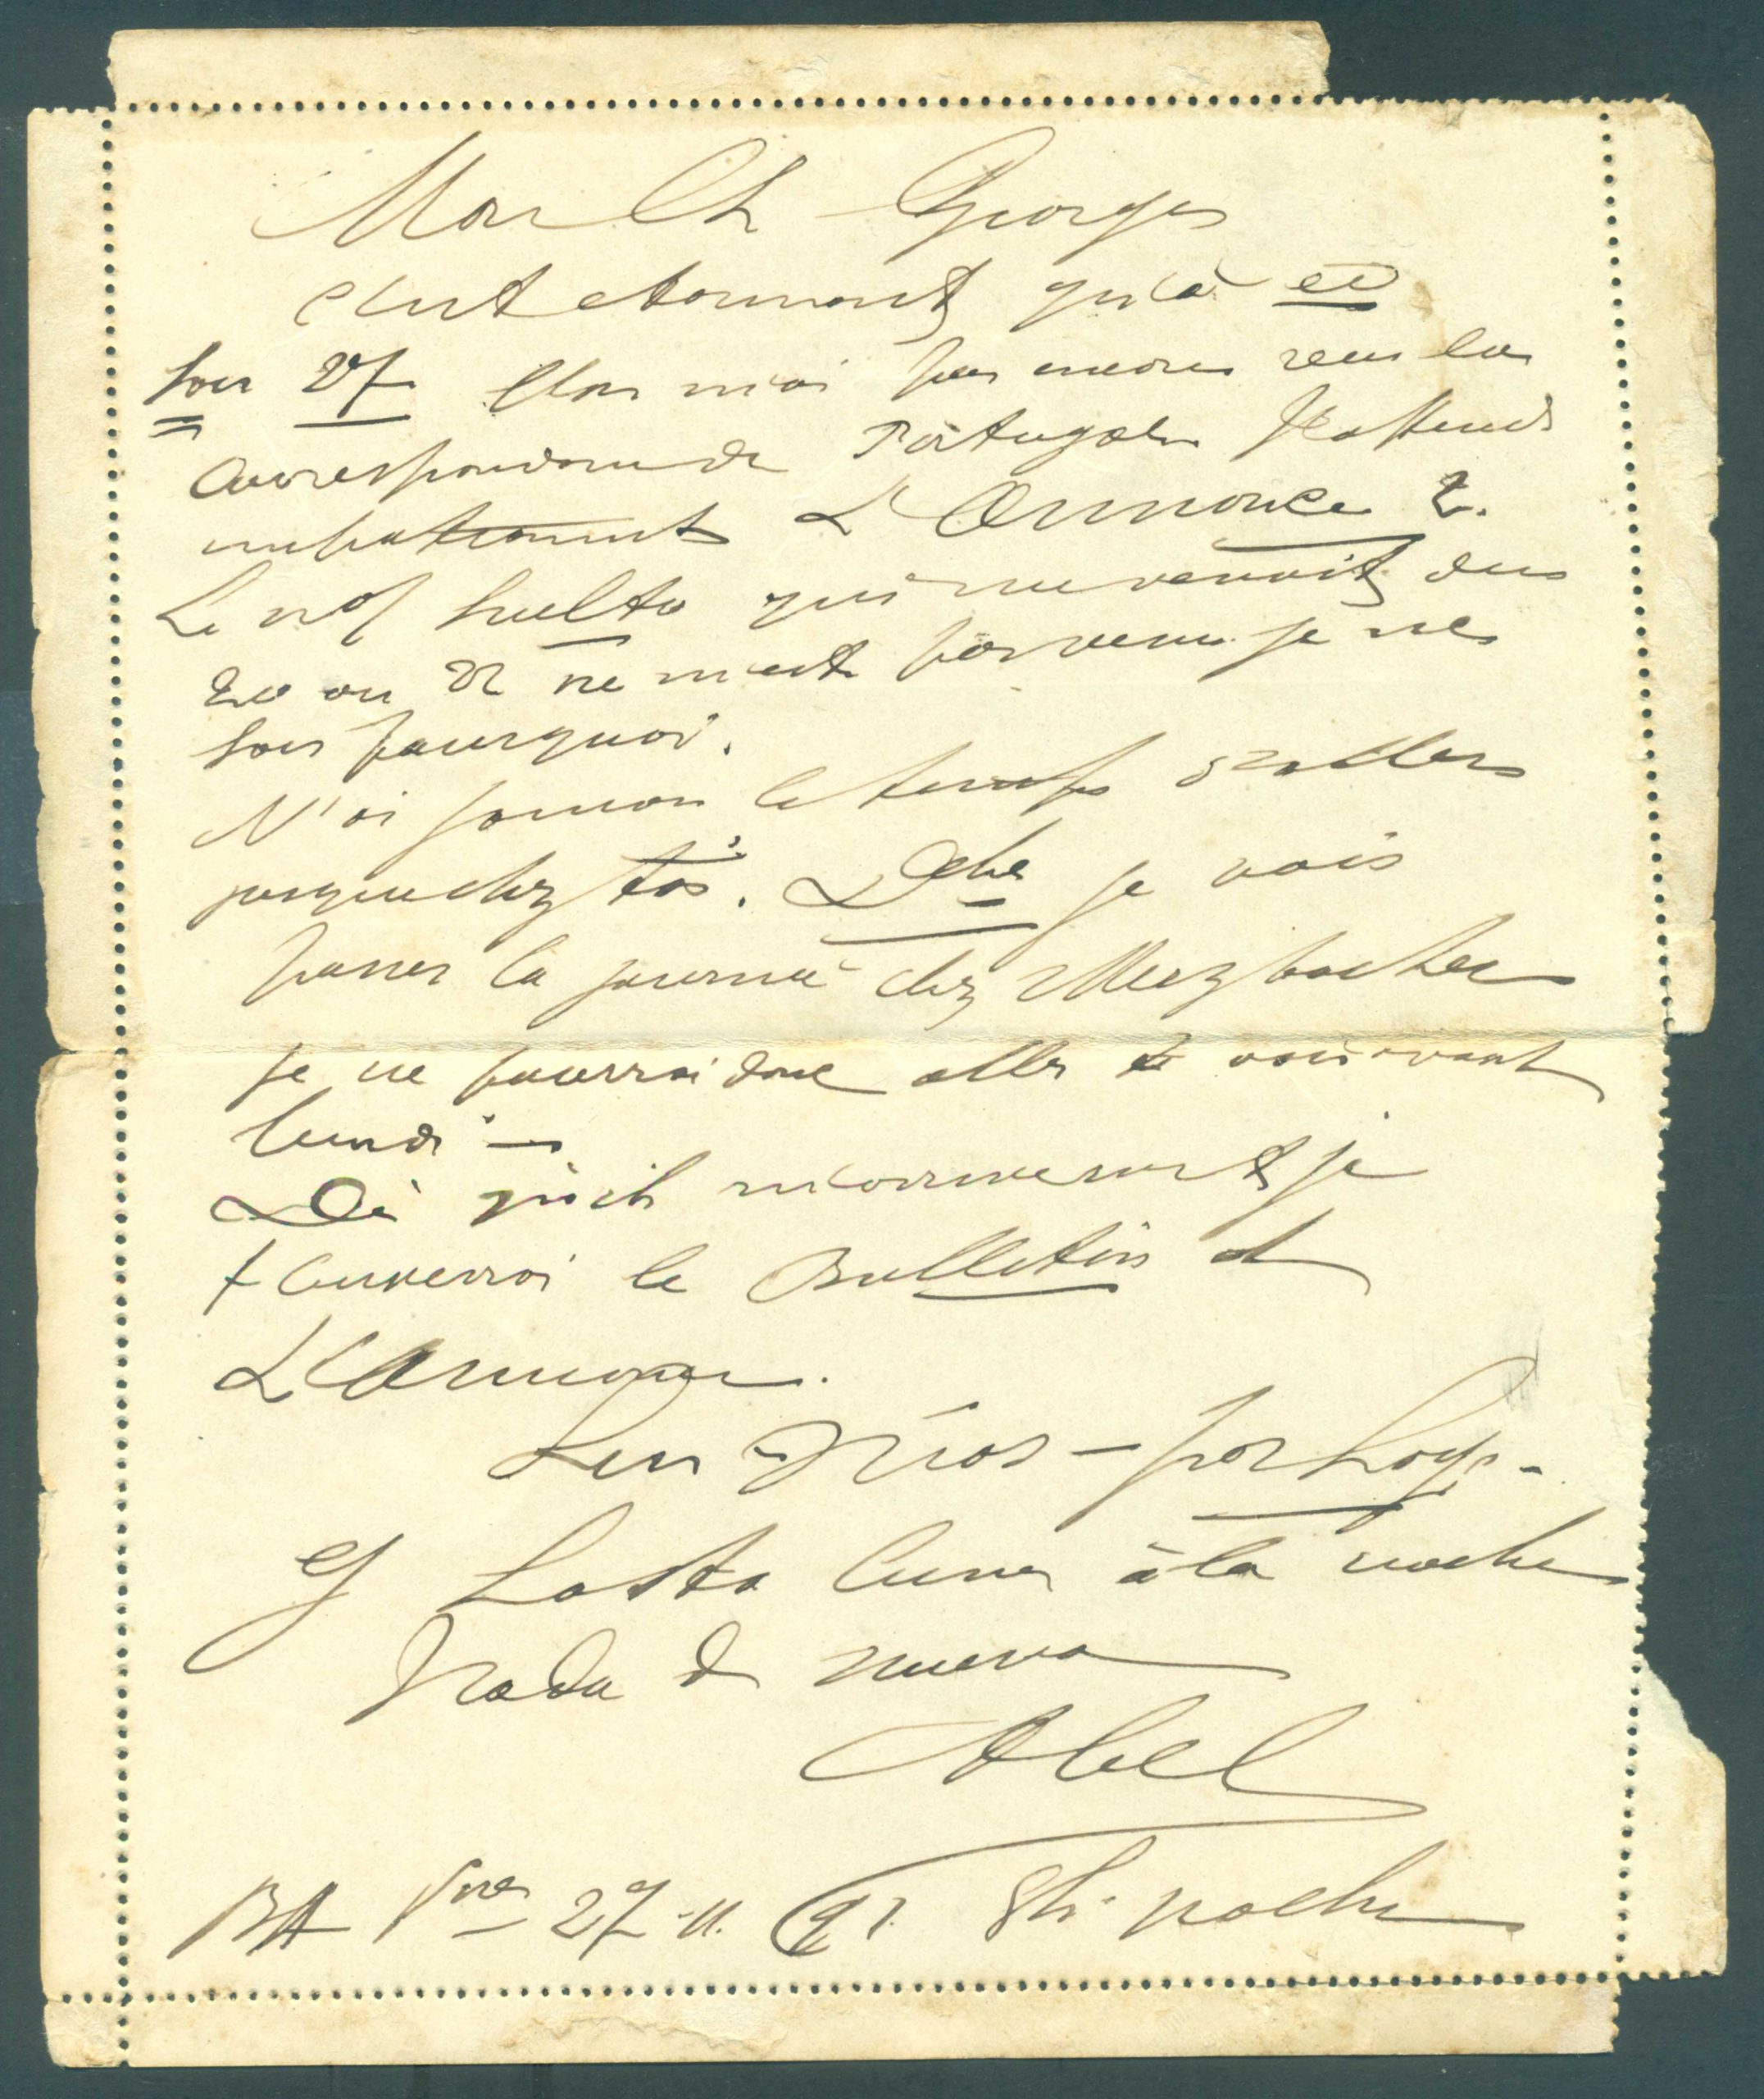 Mon Ch Georges
C'est etonnant qu'à ce
soir 27 l'on m'ai pas encore recu la
correspondance de Portugal. J'attends
impatiemment L'Annonce 2.
Le nº/ suelto qui me venait du
20 ou 22 ne m'est parvenu je ne
sais pourquoi.
N'ai jamais le temps d'aller
jusque chez toi. Dche je vais
passer la journée chez Merzbacher
je ne pourrai donc aller te voir avant
lundi —
Dè qu'ils m'arriveront je
t'enverrai le Bulletin et
L'Annonce.
y hasta lunes à la noche
Nada de nuevo
Abel
BA 27-11. 91. 8h noche